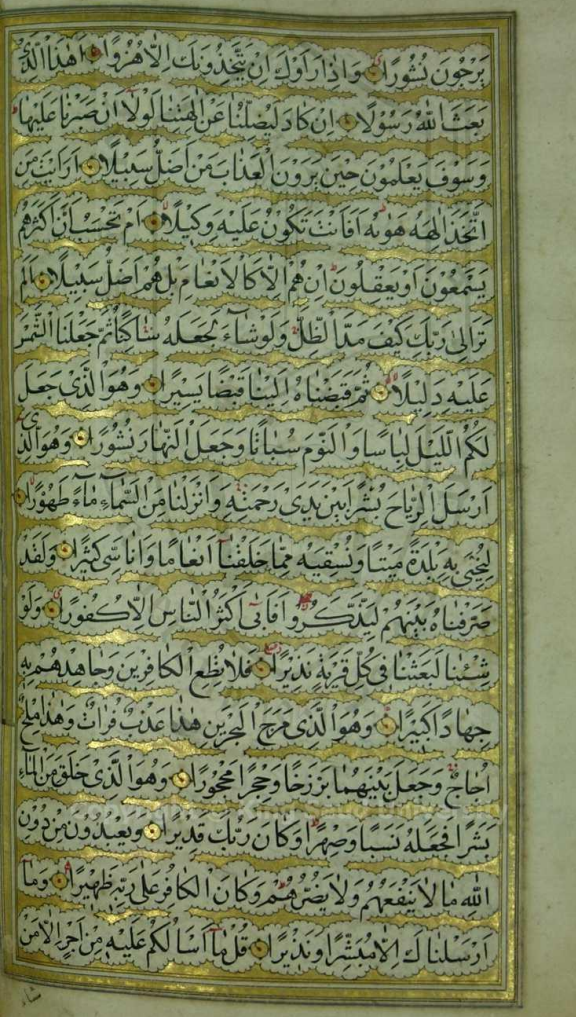 يَرْجُونَ نُشُورًا وَاِذَا رَاَوْكَ اِنْ يَتَّخِذُونَكَ اِلَّا هُزُوًا اَهٰذَا الَّذِى
بَعَثَ اللّٰهُ رَسُولًا اِنْ كَادَ لَيُضِلُّنَا عَنْ اٰلِهَتِنَا لَوْلَا اَنْ صَبَرْنَا عَلَيْهَا
وَسَوْفَ يَعْلَمُونَ حِينَ يَرَوْنَ الْعَذَابَ مَنْ اَضَلُّ سَبِيلًا اَرَاَيْتَ مَنِ
اتَّخَذَ اِلٰهَهُ هَوٰيهُ اَفَاَنْتَ تَكُونُ عَلَيْهِ وَكِيلًا اَمْ تَحْسَبُ اَنَّ اَكْثَرَهُمْ
يَسْمَعُونَ اَوْ يَعْقِلُونَ اِنْ هُمْ اِلَّا كَالْاَنْعَامِ بَلْ هُمْ اَضَلُّ سَبِيلًا اَلَمْ
تَرَ اِلٰى رَبِّكَ كَيْفَ مَدَّ الظِّلَّ وَلَوْ شَاءَ لَجَعَلَهُ سَاكِنًا ثُمَّ جَعَلْنَا الشَّمْسَ
عَلَيْهِ دَلِيلًا ثُمَّ قَبَضْنَاهُ اِلَيْنَا قَبْضًا يَسِيرًا وَهُوَ الَّذِى جَعَلَ
لَكُمُ الَّيْلَ لِبَاسًا وَالنَّوْمَ سُبَاتًا وَجَعَلَ النَّهَارَ نُشُورًا وَهُوَ الَّذِى
اَرْسَلَ الرِّيَاحَ بُشْرًا بَيْنَ يَدَىْ رَحْمَتِهِ وَاَنْزَلْنَا مِنَ السَّمَاءِ مَاءً طَهُورًا
لِنُحْيِىَ بِهِ بَلْدَةً مَيْتًا وَنُسْقِيَهُ مِمَّا خَلَقْنَا اَنْعَامًا وَاَنَاسِىَّ كَثِيرًا وَلَقَدْ
صَرَّفْنَاهُ بَيْنَهُمْ لِيَذَّكَّرُوا فَاَبٰى اَكْثَرُ النَّاسِ اِلَّا كُفُورًا وَلَوْ
شِئْنَا لَبَعَثْنَا فِى كُلِّ قَرْيَةٍ نَذِيرًا فَلَا تُطِعِ الْكَافِرِينَ وَجَاهِدْهُمْ بِهِ
جِهَادًا كَبِيرًا وَهُوَ الَّذِى مَرَجَ الْبَحْرَيْنِ هٰذَا عَذْبٌ فُرَاتٌ وَهٰذَا مِلْحٌ
اُجَاجٌ وَجَعَلَ بَيْنَهُمَا بَرْزَخًا وَحِجْرًا مَحْجُورًا وَهُوَ الَّذِى خَلَقَ مِنَ الْمَاءِ
بَشَرًا فَجَعَلَهُ نَسَبًا وَصِهْرًا وَكَانَ رَبُّكَ قَدِيرًا وَيَعْبُدُونَ مِنْ دُونِ
اللّٰهِ مَا لَا يَنْفَعُهُمْ وَلَا يَضُرُّهُمْ وَكَانَ الْكَافِرُ عَلٰى رَبِّهِ ظَهِيرًا وَمَا
اَرْسَلْنَاكَ اِلَّا مُبَشِّرًا وَنَذِيرًا قُلْ مَا اَسْاَلُكُمْ عَلَيْهِ مِنْ اَجْرٍ اِلَّا مَنْ
شَاءَ